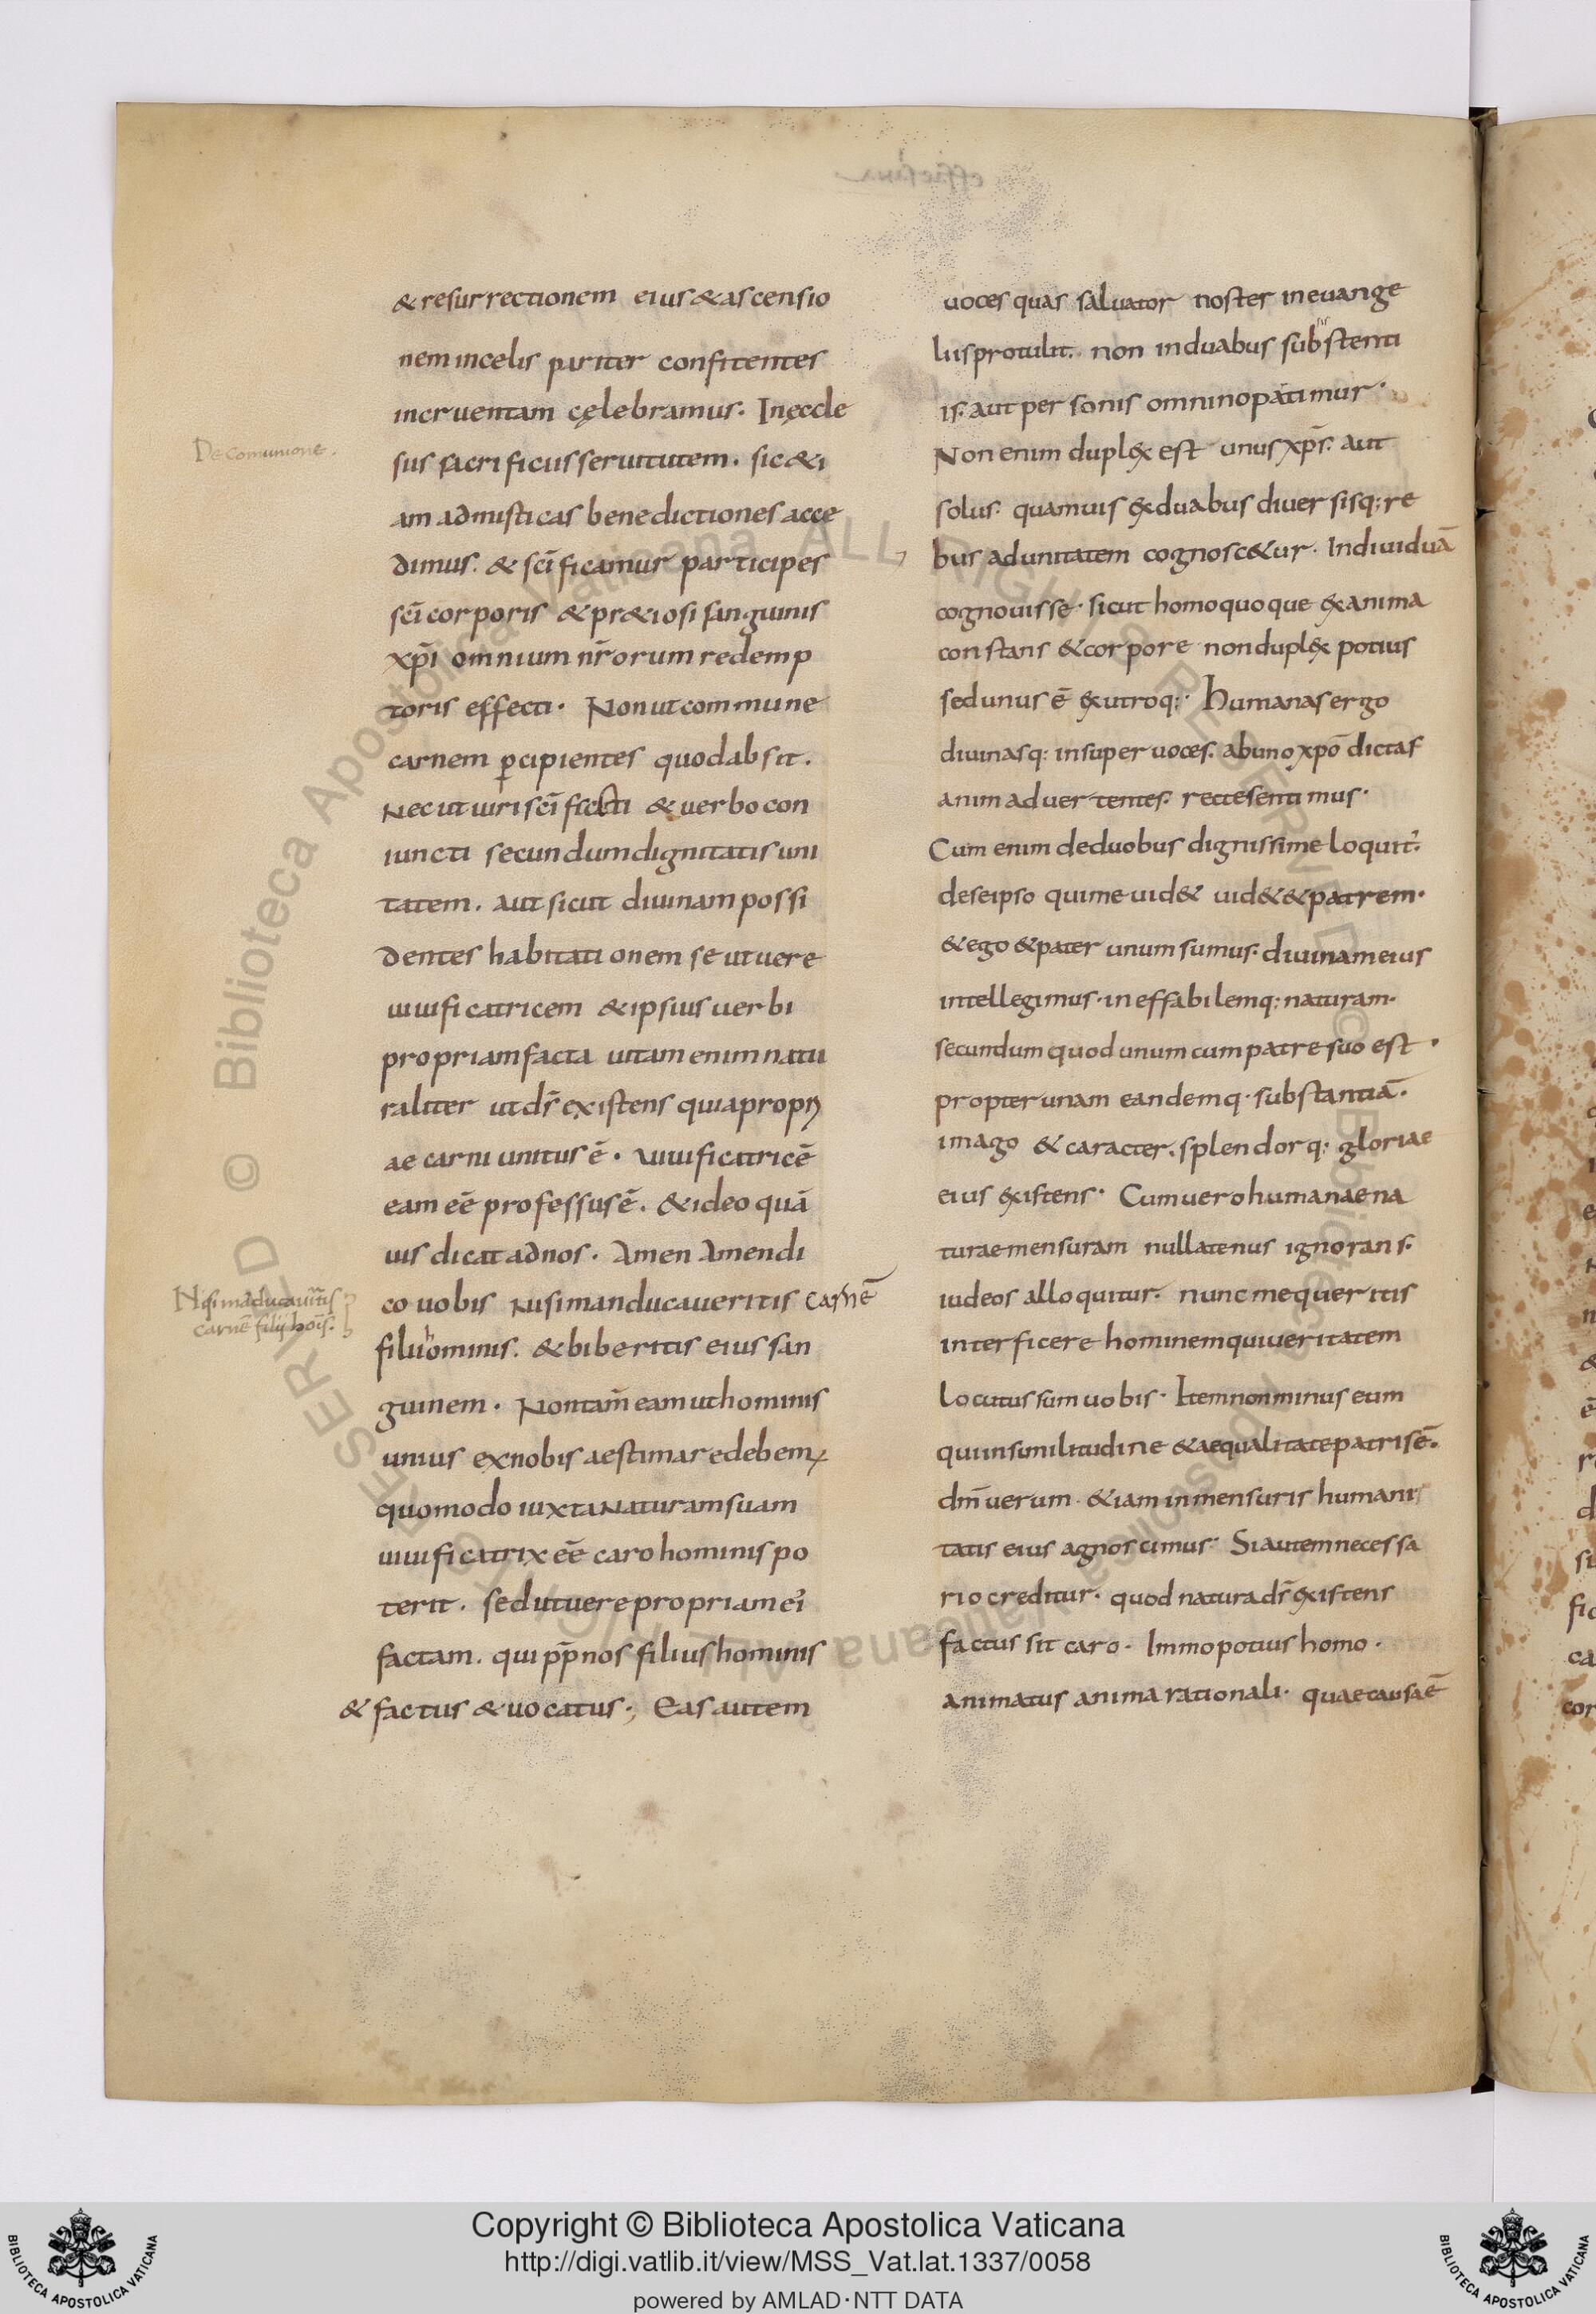 & resurrectionem eius & ascensio
nem in celis pariter confitentes
incruentam cęlebramus. In ęccle
De comunione.
siis sacrificiis seruitutem. sic & i
am ad misticas benedictiones acce
dimus. & sc̄ificamur participes
sc̄i corporis & pr&iosi sanguinis
xp̄i omnium nr̄orum redemp
toris effecti. Non ut commune
carnem p̱cipientes quod absit.
Nec ut uiri sc̄ificati & uerbo con
iuncti secundum dignitatis uni
tatem. aut sicut diuinam possi
dentes habitationem se ut uere
uiuificatricem & ipsius uerbi
propriam facta uitam enim natu
raliter ut ds̄ existens quia propri
ae carni unitus ē. uiuificatricē
eam eē professus ē. & ideo quā
uis dicat ad nos. Amen Amen di
Nisi māducaūitis
carnē filij hoīs.
co uobis Nisi manducaueritis carnē
filii hominis. & biberitis eius san
guinem. Non tam̄ eam ut hominis
unius ex nobis aestimare debem;
quomodo iuxta Naturam suam
uiuificatrix eē caro hominis po
terit. sed ut uere propriam ei'
factam. qui pp̄ nos filius hominis
& factus & uocatus; Eas autem
uoces quas saluator noster in euange
liis protulit. non in duabus subsistenti
is. aut personis omnino patimur.
Non enim duplex est unus xp̄s. aut
solus. quamuis ex duabus diuersisq; re
bus ad unitatem cognosc&ur. Indiuiduā
cognouisse. sicut homo quoque ex anima
constans & corpore non duplex potius
sed unus ē ex utroq; Humanas ergo
diuinasq; insuper uoces. ab uno xp̄o dictas
animaduertentes. recte sentimus.
Cum enim de duobus dignissime loquit'.
de se ipso qui me uid& uid& & patrem.
& ego & pater unum sumus. diuinam eius
intellegimus. ineffabilemq; naturam.
secundum quod unum cum patre suo est.
propter unam eandemq. substantiā.
imago & caracter. splendorq; gloriae
eius existens. Cum uero humanae na
turae mensuram nullatenus ignorans.
iudeos alloquitur. nunc me queritis
interficere hominem qui ueritatem
locutus sum uobis. Item non minus eum
qui in similitudine & aequalitate patris ē.
dm̄ uerum. & iam in mensuris humani
tatis eius agnoscimus. Si autem necessa
rio creditur. quod natura ds̄ existens
factus sit caro. Immo potius homo.
animatus anima rationali. quae causa ē
© Biblioteca Apostolica Vaticana ALL RIGHTS RESERVED
Copyright © Biblioteca Apostolica Vaticana
http://digi.vatlib.it/view/MSS_Vat.lat.1337/0058
powered by AMLAD·NTT DATA
BIBLIOTECA APOSTOLICA VATICANA
BIBLIOTECA APOSTOLICA VATICANA